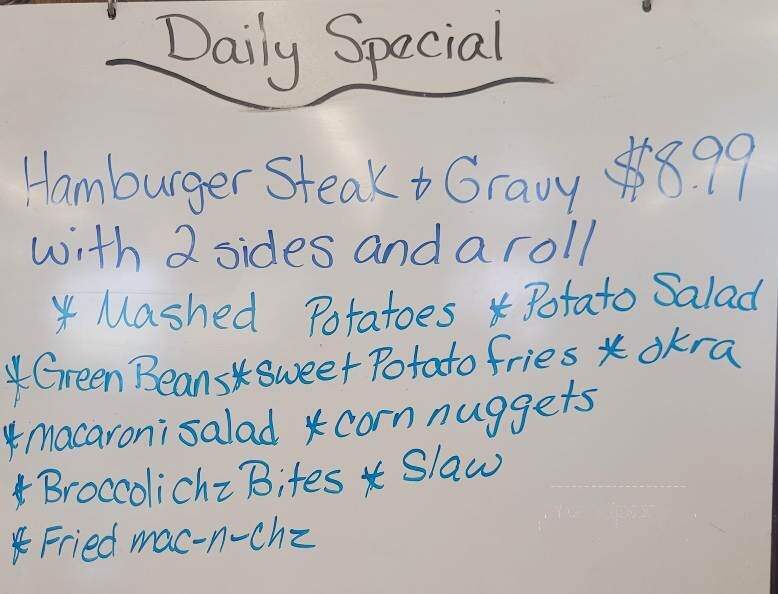 Daily Special
Hamburger Steak & Gravy $8.99
with 2 sides and a roll
* Mashed Potatoes * Potato Salad
* Green Beans * sweet Potato fries * okra
* macaroni salad * corn nuggets
* Broccoli chz Bites * Slaw
* Fried mac-n-chz